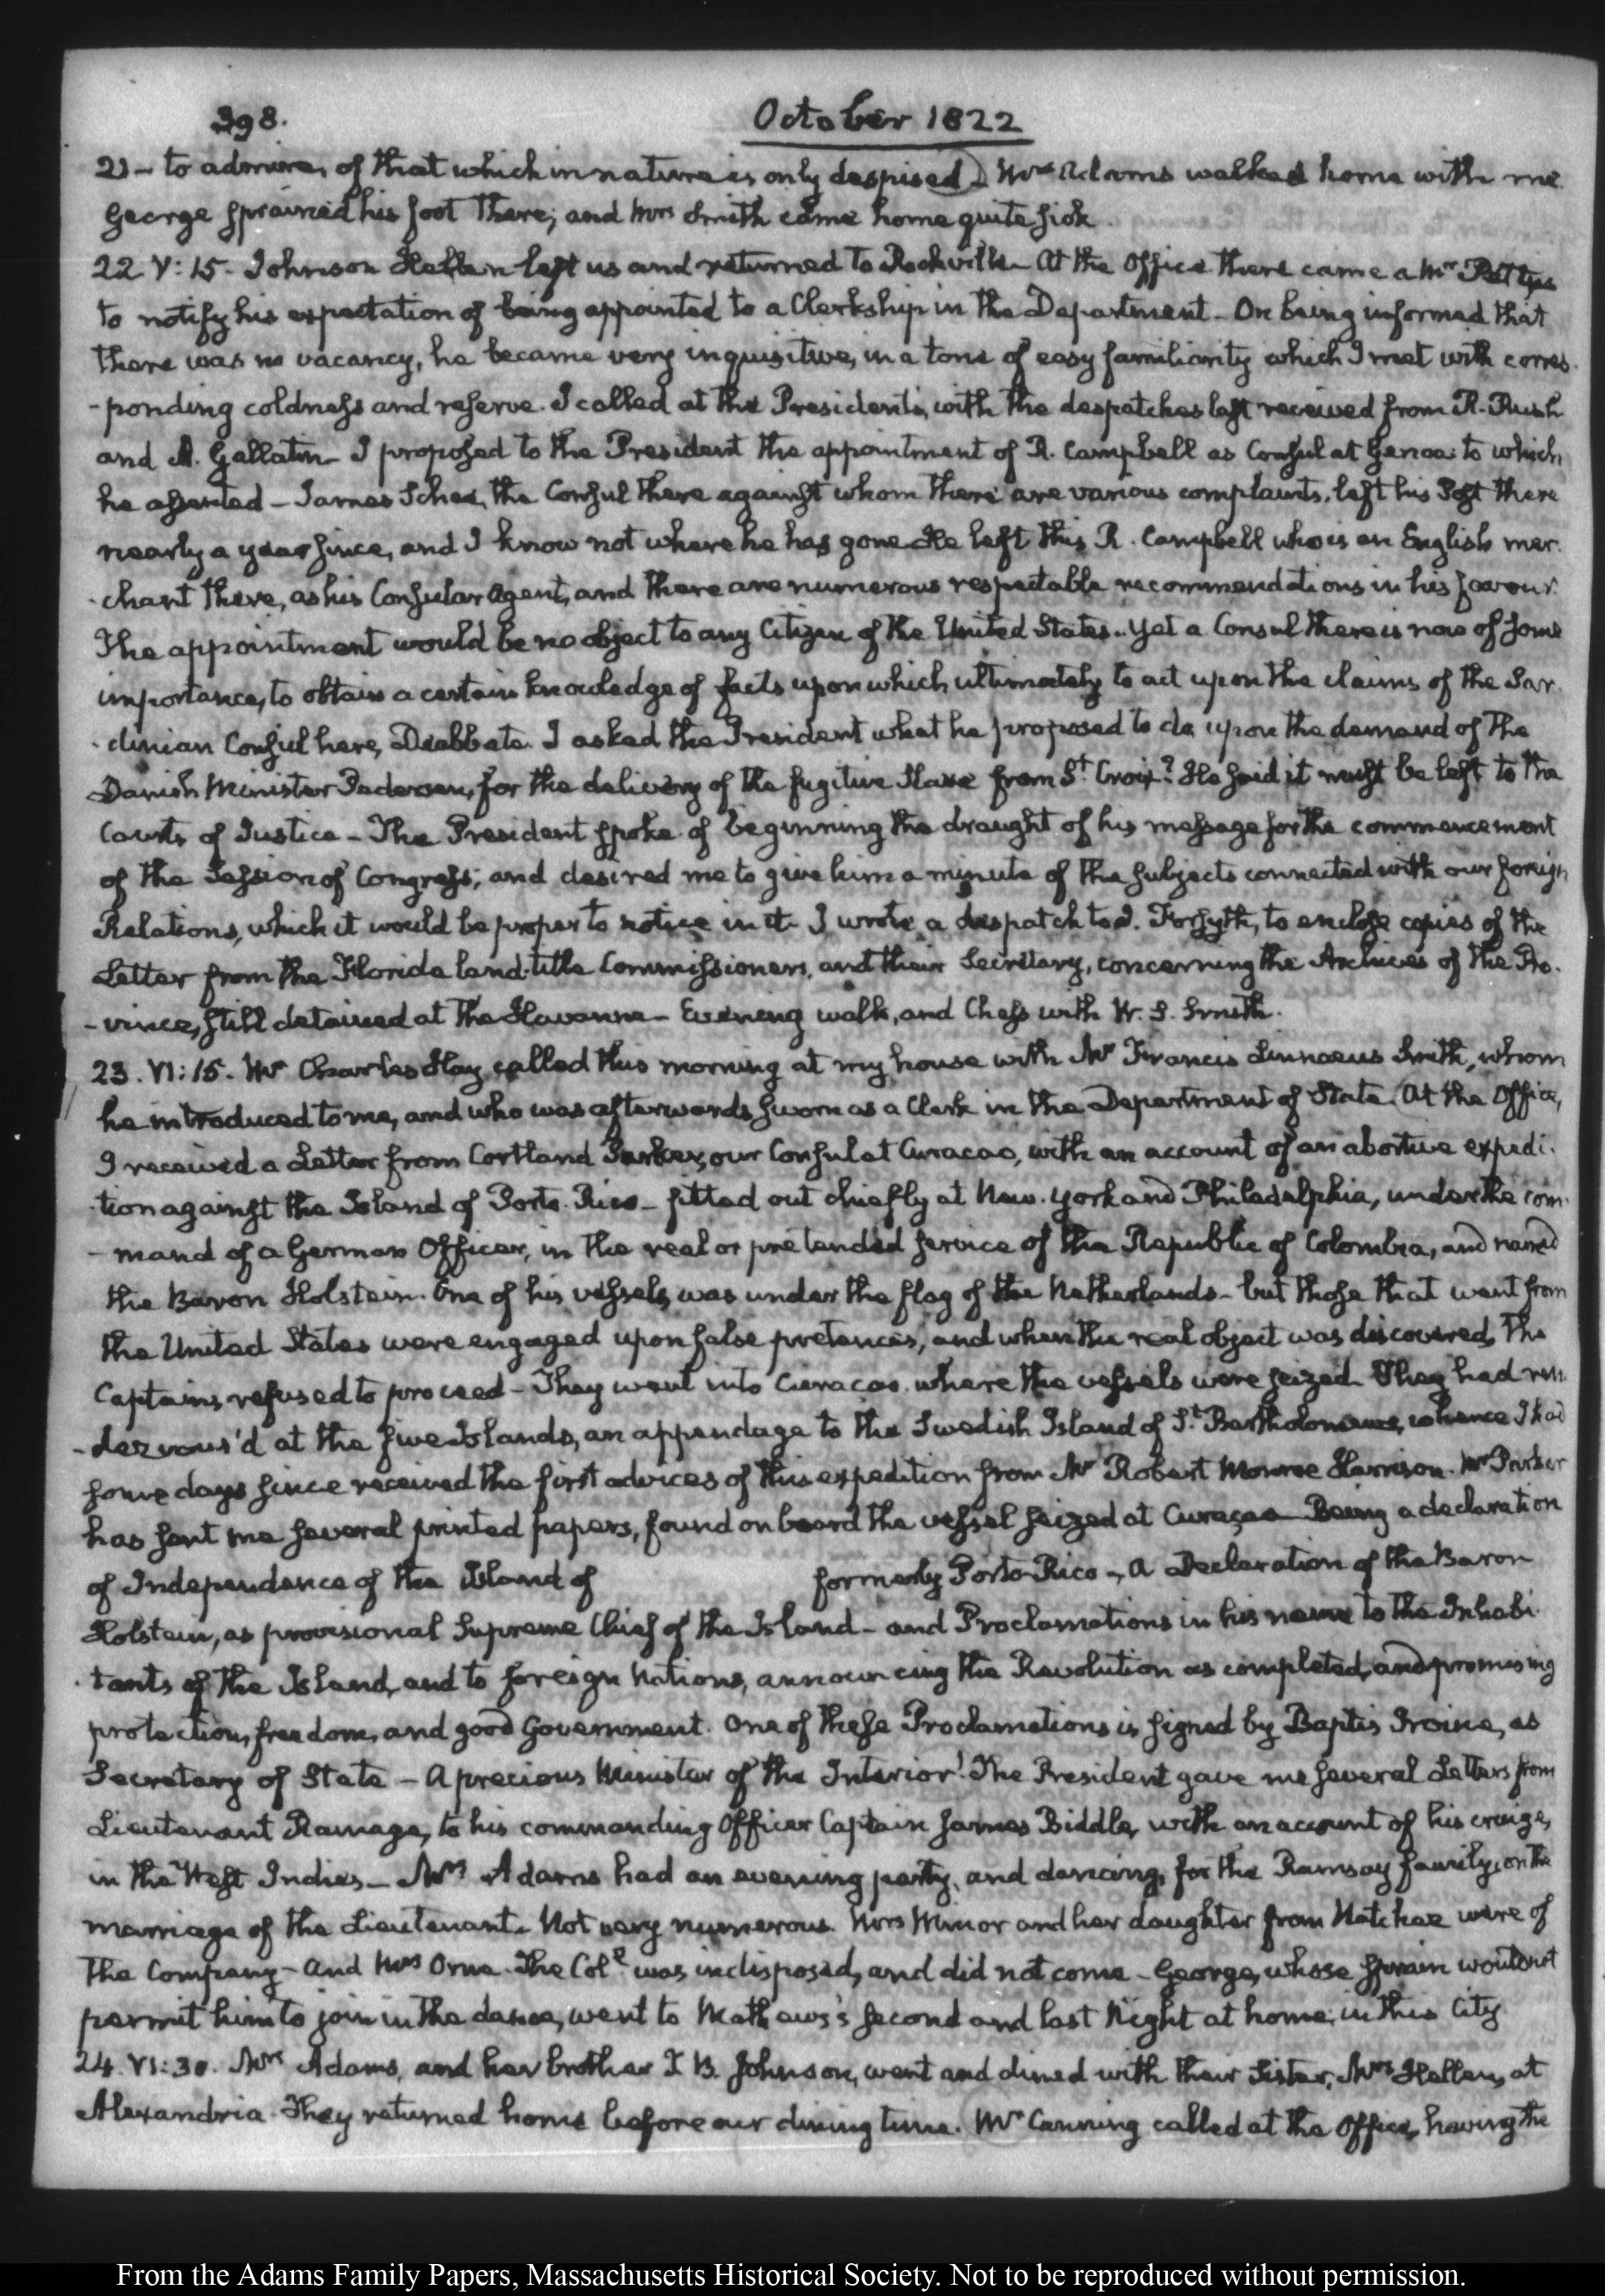 398.
October 1822
21 – to admire, of that which in nature is only despised.) Mrs. Adams walked home with me.
George sprained his foot there; and Mrs Smith came home quite sick.
22 V:15. Johnson Hellen left us and returned to Rockville – At the Office there came a Mr
to notify his expectation of being appointed to a Clerkship in the Department – On being informed that
there was no vacancy, he became very inquisitive, in a tone of easy familiarity which I met with corres-
-ponding coldness and reserve. I called at the President's, with the despatches last received from R. Rush
and A. Gallatin – I proposed to the President the appointment of R. Campbell as Consul at Genoa: to which
he assented – James the Consul there against whom there are various complaints, left his Post there
nearly a year since, and I know not where he has gone He left this R. Campbell who is an English mer-
-chant there, as his Consular Agent, and there are numerous respectable recommendations in his favour.
The appointment would be no object to any Citizen of the United States.. Yet a Consul there is now of some
importance, to obtain a certain knowledge of facts upon which ultimately to act upon the claims of the Sar-
-dinian Consul here, Deabbate. I asked the President what he proposed to do, upon the demand of the
Danish Minister Pedersen, for the delivery of the fugitive Slave from St. Croix? He said it must be left to the
Courts of Justice – The President spoke of beginning the draught of his message for the commencement
of the Session of Congress; and desired me to give him a minute of the subjects connected with our foreign
Relations, which it would be proper to notice in it. I wrote a despatch to J. Forsyth, to enclose copies of the
Letter from the Florida land-title Commissioners, and their Secretary, concerning the Archives of the Pro-
-vince, still detained at the Havanna – Evening walk, and Chess with W. S. Smith.
23. VI:15. Mr Charles Hay called this morning at my house with Mr Francis Linnaeus Smith, whom
he introduced to me, and who was afterwards sworn as a Clerk in the Department of State. At the Office,
I received a Letter from Cortland Parker, our Consul at Curacao, with an account of an abortive expedi-
-tion against the Island of Porto-Rico – fitted out chiefly at New-York and Philadelphia, under the com-
-mand of a German Officer, in the real or pretended service of the Republic of Colombia, and named
the Baron Holstein. One of his vessels was under the flag of the Netherlands – but those that went from
the United States were engaged upon false pretences, and when the real object was discovered, the
Captains refused to proceed – They went into Curacao. where the vessels were seized. They had ren-
-dezvous'd at the five Islands, an appendage to the Swedish Island of St. Bartholomews, whence I had
some days since received the first advices of this expedition from Mr Robert Monroe Harrison. Mr Parker
has sent me several printed papers, found on board the vessel seized at Curaçao Being a declaration
of Independence of the Island of formerly Porto-Rico – A Declaration of the Baron
Holstein, as provisional Supreme Chief of the Island – and Proclamations in his name to the Inhabi-
-tants of the Island, and to foreign Nations, announcing the Revolution as completed, and promising
protection, freedom, and good Government. One of these Proclamations is signed by Baptis Irvine, as
Secretary of State – A precious Minister of the Interior! The President gave me several Letters from
Lieutenant Ramage, to his commanding Officer Captain James Biddle, with an account of his cruize,
in the West Indies – Mrs Adams had an evening party, and dancing, for the Ramsay family, on the
marriage of the Lieutenant. Not very numerous. Mrs Minor and her daughter from Natchez were of
the Company – And Mrs Orne. The Coll. was indisposed, and did not come – George, whose sprain would not
permit him to join in the dance, went to Mathews's second and last Night at home, in this City
24. VI:30. Mrs Adams, and her brother T. B. Johnson, went and dined with their Sister, Mrs Hellen, at
Alexandria. They returned home before our dining time. Mr Canning called at the Office, having the
From the Adams Family Papers, Massachusetts Historical Society. Not to be reproduced without permission.